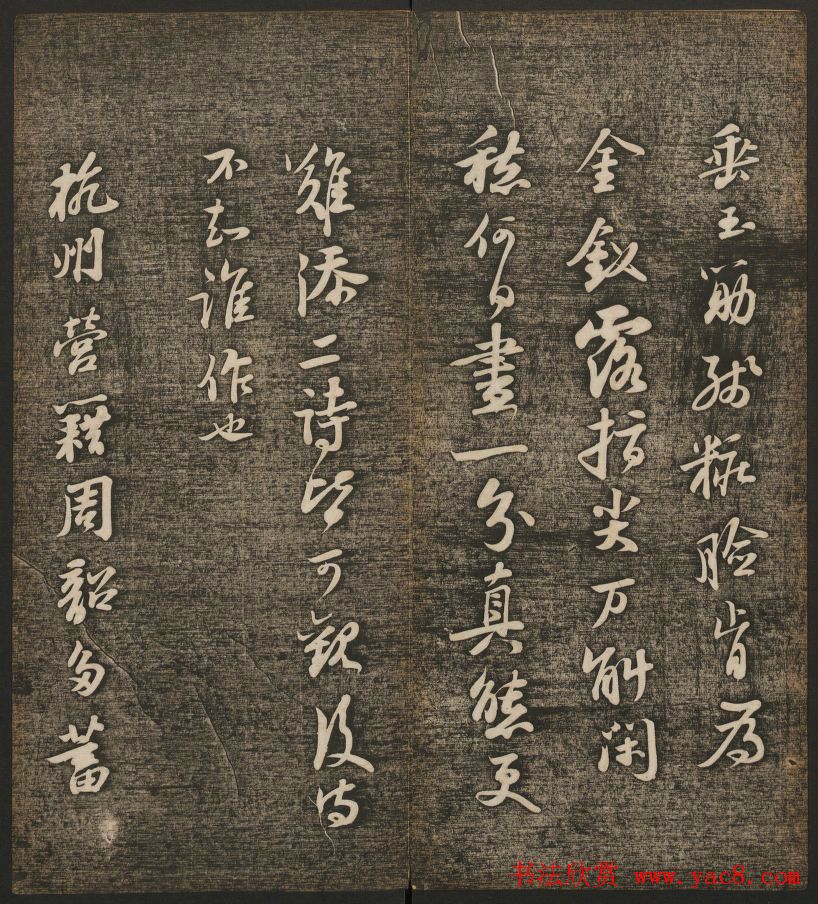 垂玉筯殘粧臉肯為
金釵露指尖万斛閑
愁何日盡一分真態更
難添二詩皆可觀後詩
不知誰作也
杭州營籍周韶多蓄
书法欣赏 www.yac8.com